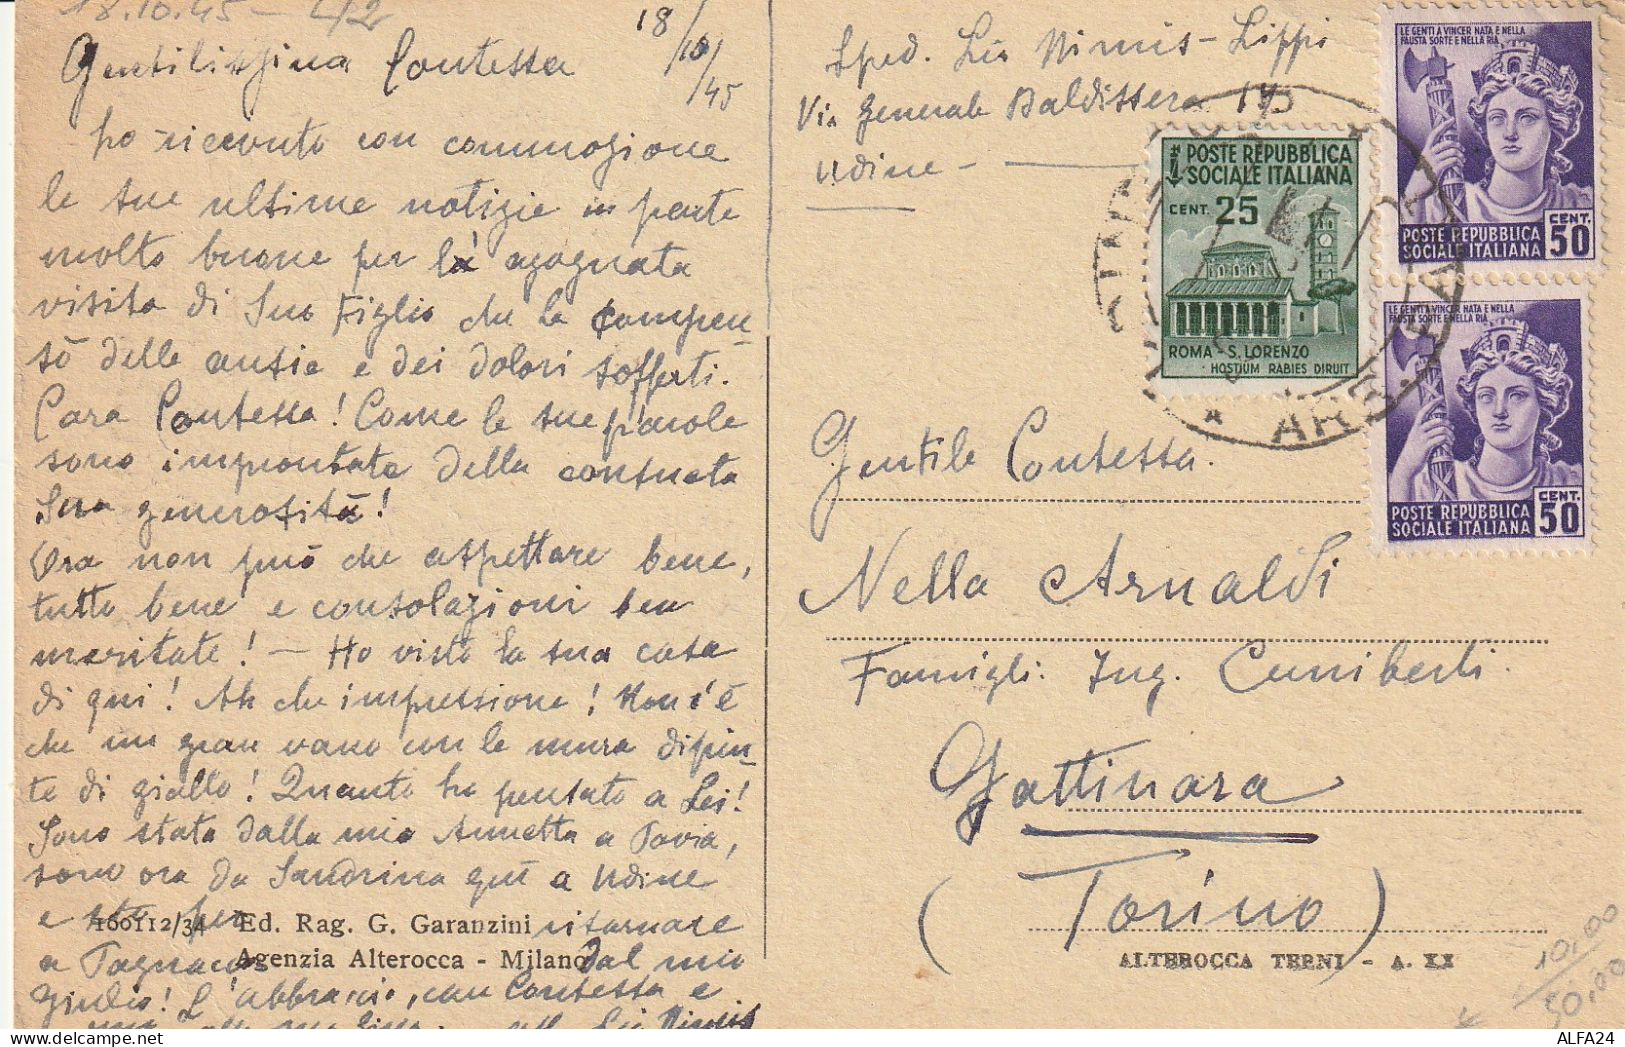 18.10.45 -
18/10/45
Gentilissima Contessa
ho ricevuto con commozione
le sue ultime notizie in parte
molto buone per la agognata
visita di Suo Figlio che la compen
sò delle ansie e dei dolori sofferti.
Cara Contessa! Come le sue parole
sono improntate della consueta
Sua generosità!
Ora non può che aspettare bene,
tutto bene e consolazioni ben
meritate! - Ho visto la sua casa
di qui! Ah che impressione! Non c'è
che un gran vano con le mura dipin-
te di giallo! Quanto ho pensato a Lei!
Sono stata dalla mia Annetta a Pavia,
sono ora da Sandrina qui a Udine
e per ritornare
160112/34 Ed. Rag. G. Garanzini
a dal mio
Agenzia Alterocca - Milano
Giulio! L'abbraccio, cara Contessa e
Sped. Lia Nimis-Lippi
Via Generale Baldissera 14
Udine -
POSTE REPUBBLICA
SOCIALE ITALIANA
CENT. 25
ROMA - S. LORENZO
HOSTIUM RABIES DIRUIT
LE GENTI A VINCER NATA E NELLA
FAUSTA SORTE E NELLA RIA
CENT.
POSTE REPUBBLICA 50
SOCIALE ITALIANA
LE GENTI A VINCER NATA E NELLA
FAUSTA SORTE E NELLA RIA
CENT.
POSTE REPUBBLICA 50
SOCIALE ITALIANA
Gentile Contessa.
Nella Arnaldi
Famigli: Ing. Cuniberti.
Gattinara
(Torino)
ALTEROCCA TERNI - A. XX
10,00
50,00
ALFA24